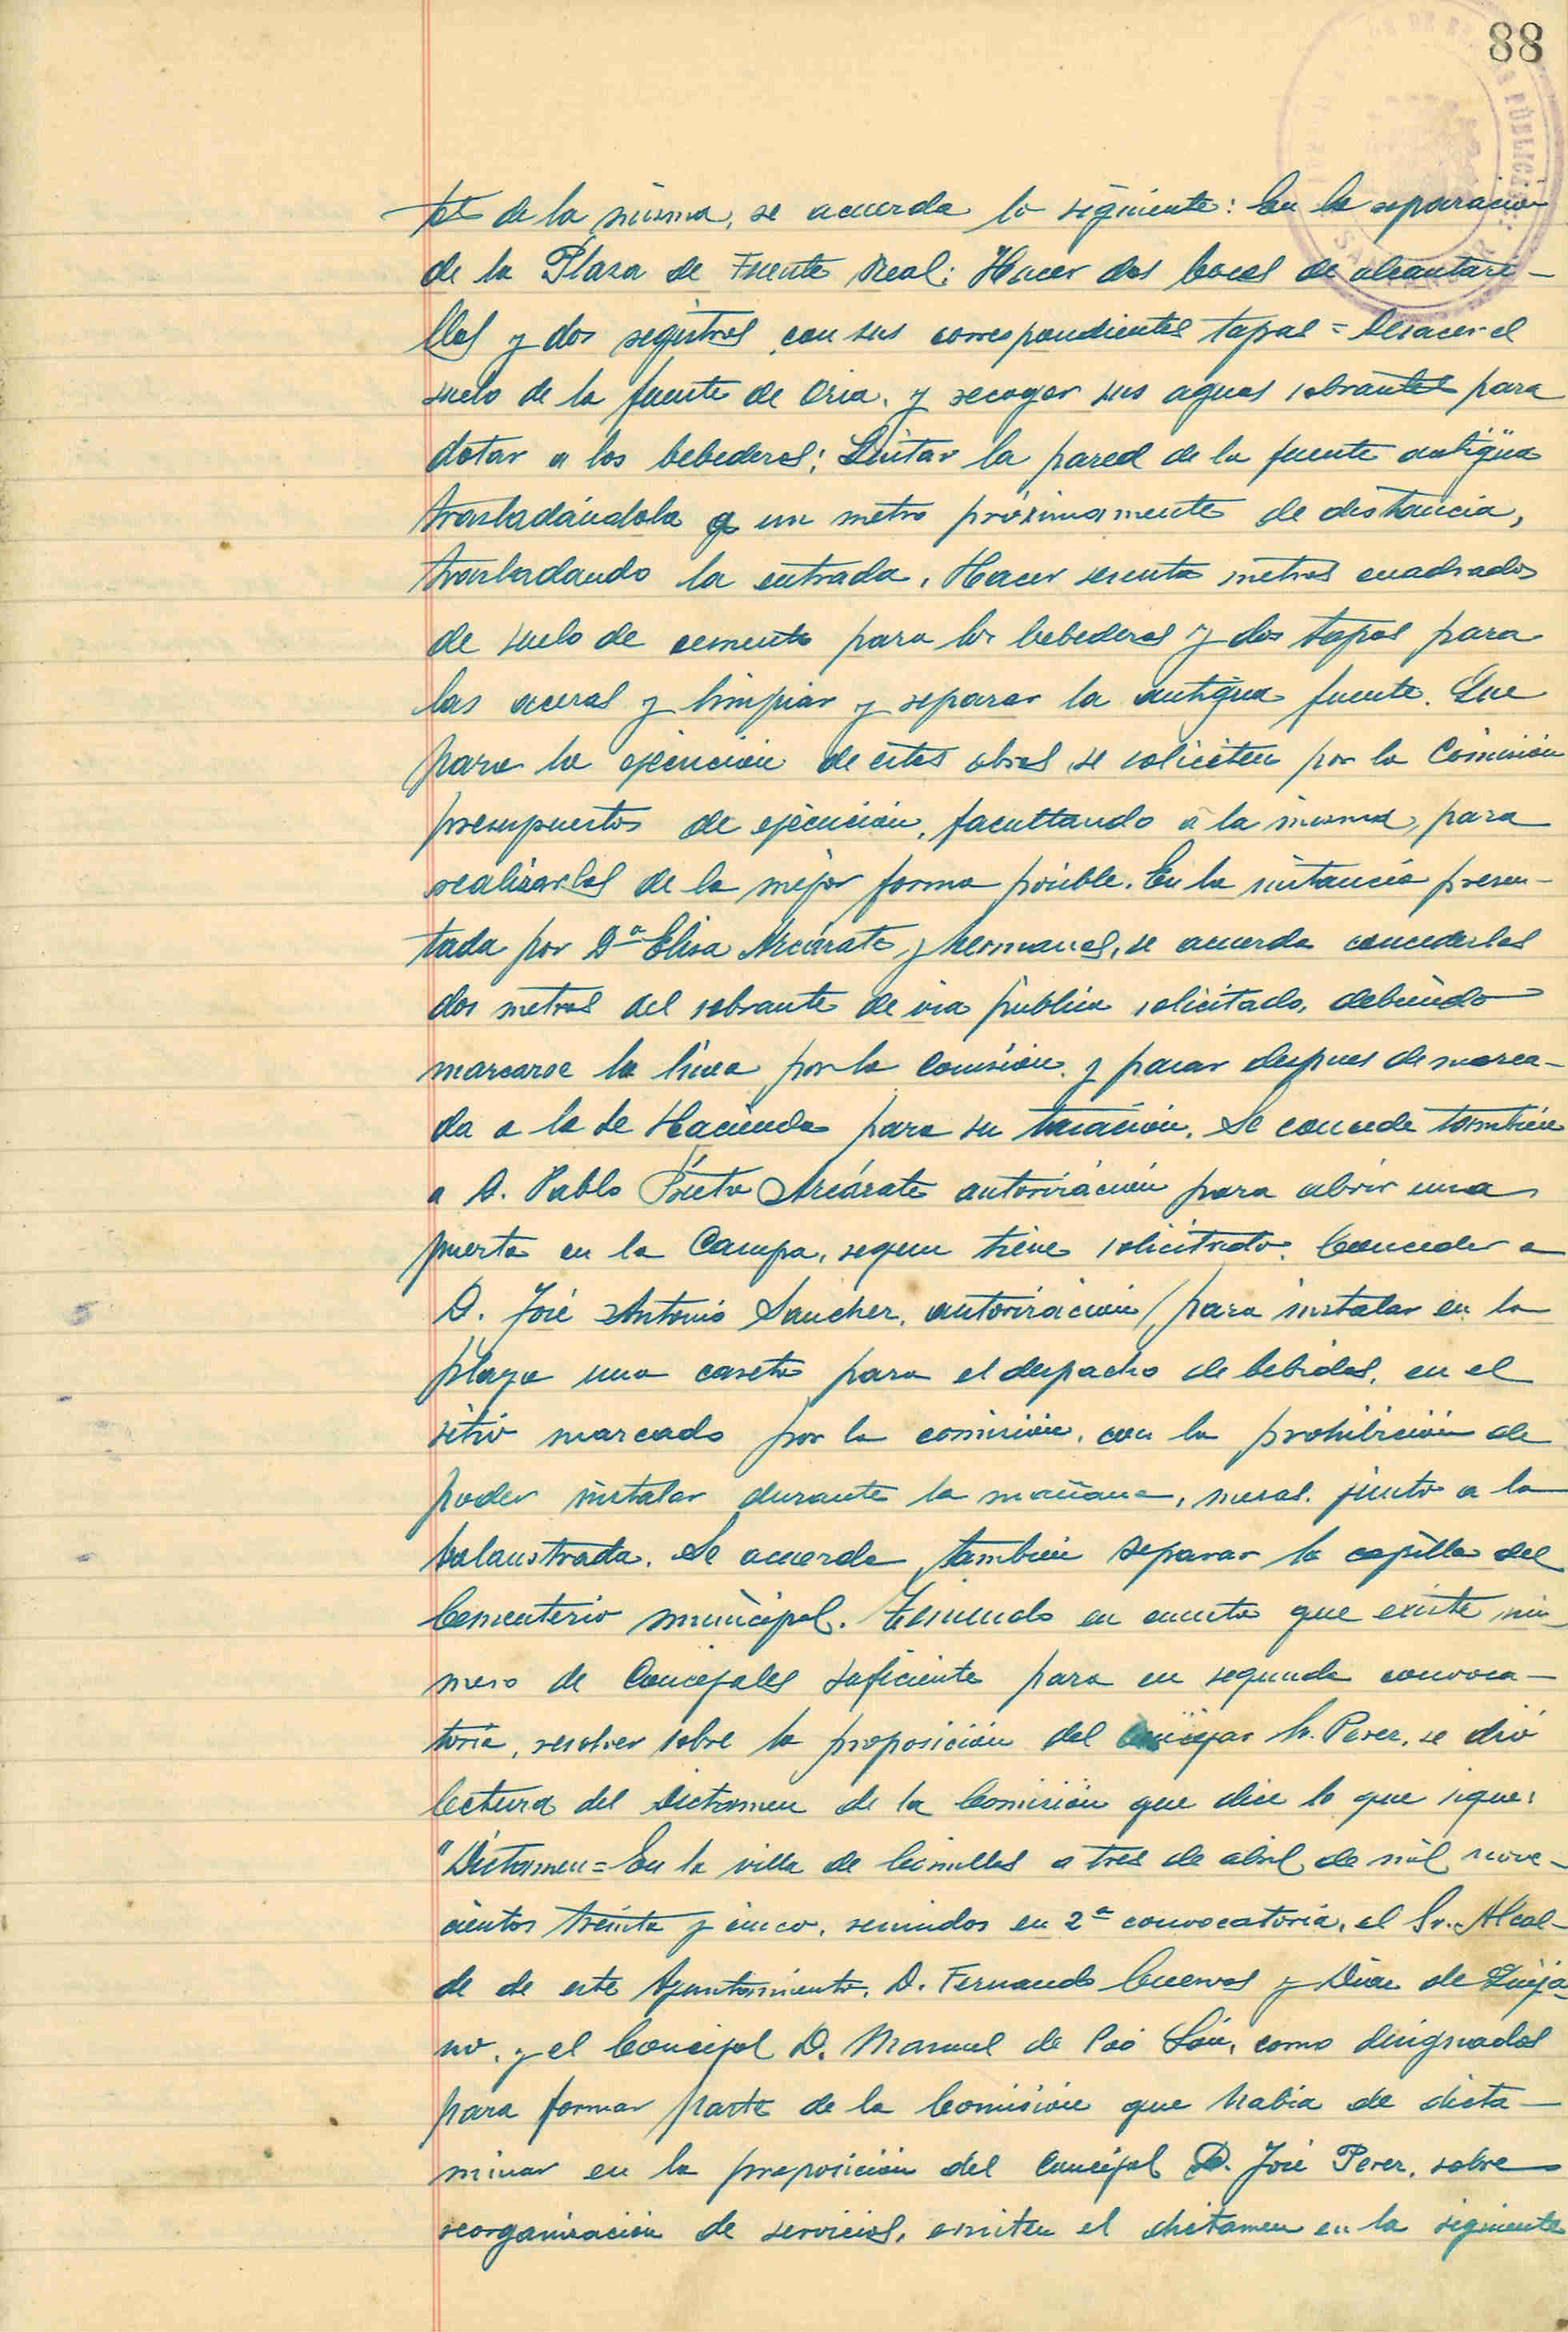 88
tes de la misma, se acuerda lo siguiente: En la reparación
de la Plaza de Fuente Real: Hacer dos bocas de alcantari-
llas y dos registros con sus correspondientes tapas = Desacer el
suelo de la fuente de Oria, y recoger sus aguas sobrantes para
dotar a los bebederos; Quitar la pared de la fuente antigüa
trasladándola a un metro próximamente de distancia,
trasladando la entrada. Hacer sesenta metros cuadrados
de suelo de cemento para los bebederos y dos tapas para
las aceras y limpiar y reparar la antigua fuente. Que
para la ejecución de estas obras se soliciten por la Comisión
presupuestos de ejecución, facultando a la misma, para
realizarlas de la mejor forma posible. En la instancia presen-
tada por Dª Elisa Arcárate y hermanas, se acuerda concederlas
dos metros del sobrante de via pública solicitado, debiendo
marcarse la línea por la Comisión y pasar despues de marca-
da a la de Hacienda para su tasación. Se concede también
a D. Pablo Prieto Arcárate autorización para abrir una
puerta en la Campa, segun tiene solicitado. Conceder a
D. José Antonio Sanchez, autorización para instalar en la
playa una caseta para el despacho de bebidas, en el
sitio marcado por la comisión, con la prohibición de
poder instalar durante la mañana, mesas junto a la
balaustrada. Se acuerda también reparar la capilla del
Cementerio municipal. Teniendo en cuenta que existe nú-
mero de Concejales suficiente para en segunda convoca-
toria, resolver sobre la proposición del Sr. Perez, se dió
lectura del Dictamen de la Comisión que dice lo que sigue:
"Dictamen = En la villa de Comillas a tres de abril de mil nove-
cientos treinta y cinco, reunidos en 2ª convocatoria, el Sr. Alcal-
de de este Ayuntamiento, D. Fernando Cuevas y Diaz de Quija-
no, y el Concejal D. Manuel de Poó Sáiz, como designados
para formar parte de la Comisión que habia de dicta-
minar en la proposición del Concejal D. José Perez, sobre
reorganización de servicios, emiten el dictamen en la siguiente
PÚBLICAS
SANTANDER